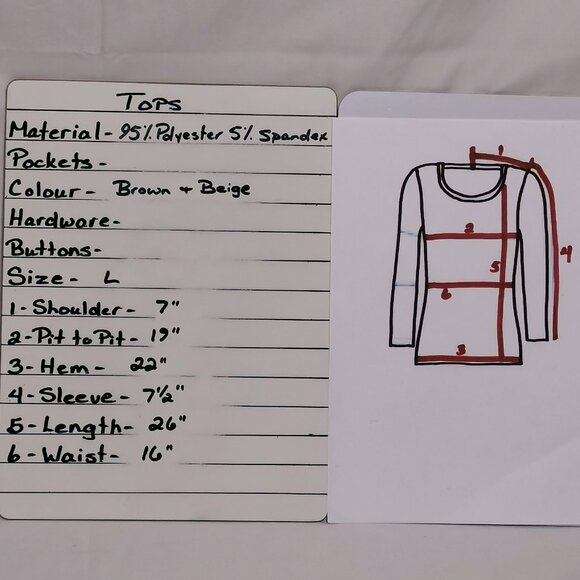 Tops
Material - 95% Polyester 5% Spandex
Pockets -
Colour - Brown + Beige
Hardware -
Buttons -
Size - L
1 - Shoulder - 7"
2 - Pit to Pit - 19"
3 - Hem - 22"
4 - Sleeve - 7½"
5 - Length - 26"
6 - Waist - 16"
1
2
4
5
6
3